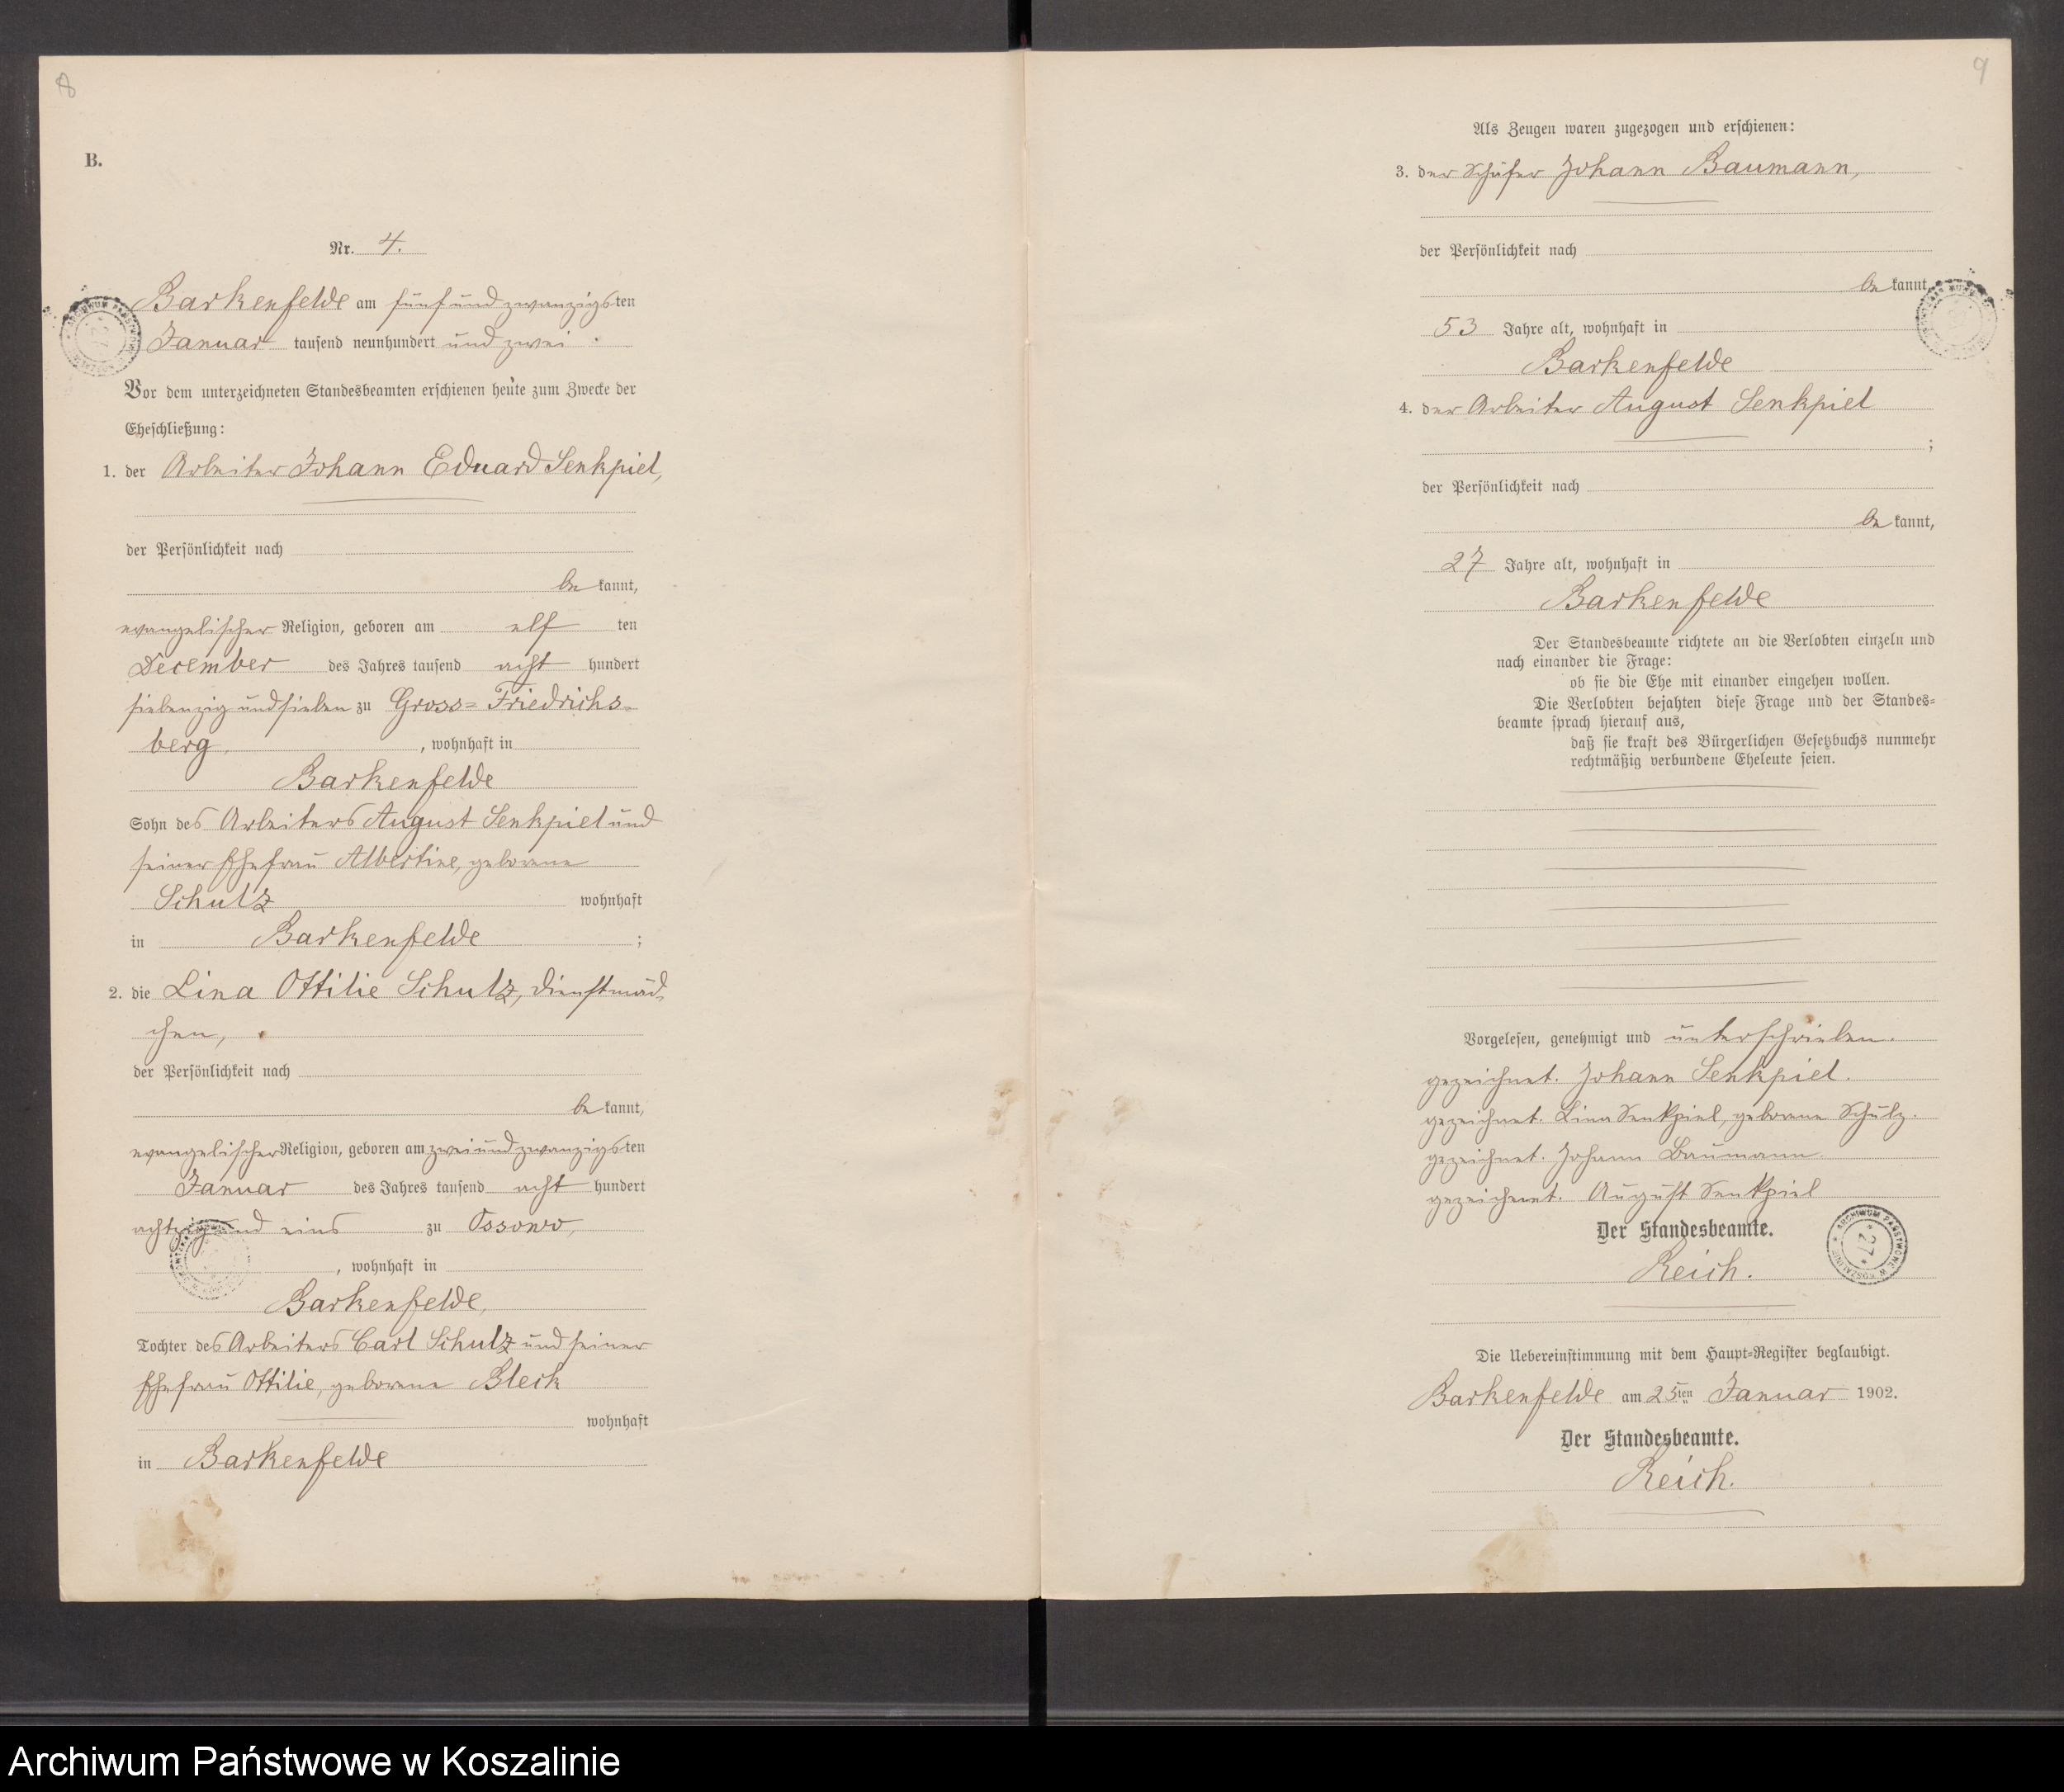 8
B.
Nr. 4.
Barkenfelde am fünf und zwanzigsten
Januar tausend neunhundert und zwei.
Vor dem unterzeichneten Standesbeamten erschienen heute zum Zwecke der
Eheschließung:
1. der Arbeiter Johann Eduard Senkpiel,
der Persönlichkeit nach
be kannt,
evangelischer Religion, geboren am elf ten
December des Jahres tausend acht hundert
siebenzig und sieben zu Gross=Friedrichs-
berg, wohnhaft in
Barkenfelde
Sohn des Arbeiters August Senkpiel und
seiner Ehefrau Albertine, geborene
Schulz wohnhaft
in Barkenfelde ;
2. die Lina Ottilie Schulz, Dienstmäd-
chen,
der Persönlichkeit nach
be kannt,
evangelischer Religion, geboren am zwei und zwanzigsten
Januar des Jahres tausend acht hundert
achtzig und eins zu Ossowo,
, wohnhaft in
Barkenfelde,
Tochter des Arbeiters Carl Schulz und seiner
Ehefrau Ottilie, geborene Bleck
wohnhaft
in Barkenfelde
9
Als Zeugen waren zugezogen und erschienen:
3. der Schäfer Johann Baumann,
der Persönlichkeit nach
be kannt,
53 Jahre alt, wohnhaft in
Barkenfelde
4. der Arbeiter August Senkpiel
;
der Persönlichkeit nach
be kannt,
27 Jahre alt, wohnhaft in
Barkenfelde
Der Standesbeamte richtete an die Verlobten einzeln und
nach einander die Frage:
ob sie die Ehe mit einander eingehen wollen.
Die Verlobten bejahten diese Frage und der Standes=
beamte sprach hierauf aus,
daß sie kraft des Bürgerlichen Gesetzbuchs nunmehr
rechtmäßig verbundene Eheleute seien.
Vorgelesen, genehmigt und unterschrieben.
gezeichnet. Johann Senkpiel.
gezeichnet. Lina Senkpiel, geborene Schulz.
gezeichnet. Johann Baumann.
gezeichnet. August Senkpiel
Der Standesbeamte.
Reich.
ARCHIWUM PAŃSTWOWE W KOSZALINIE
27
Die Uebereinstimmung mit dem Haupt=Register beglaubigt.
Barkenfelde am 25ten Januar 1902.
Der Standesbeamte.
Reich.
Archiwum Państwowe w Koszalinie